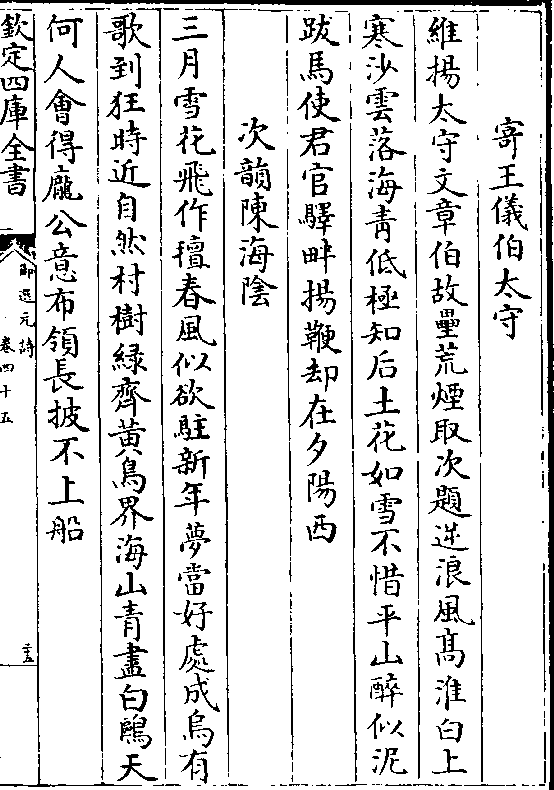 寄王儀伯太守
維揚太守文章伯故壘荒煙取次題逆浪風髙淮白上
寒沙雲落海青低極知后土花如雪不惜平山醉似泥
跋馬使君官驛畔揚鞭却在夕陽西
次韻陳海隂
三月雪花飛作氊春風似欲駐新年夢當好處成烏有
歌到狂時近自然村樹緑齊黄鳥界海山青盡白鷗天
何人會得龐公意布領長披不上船
欽定四庫全書
御選元詩
卷四十五